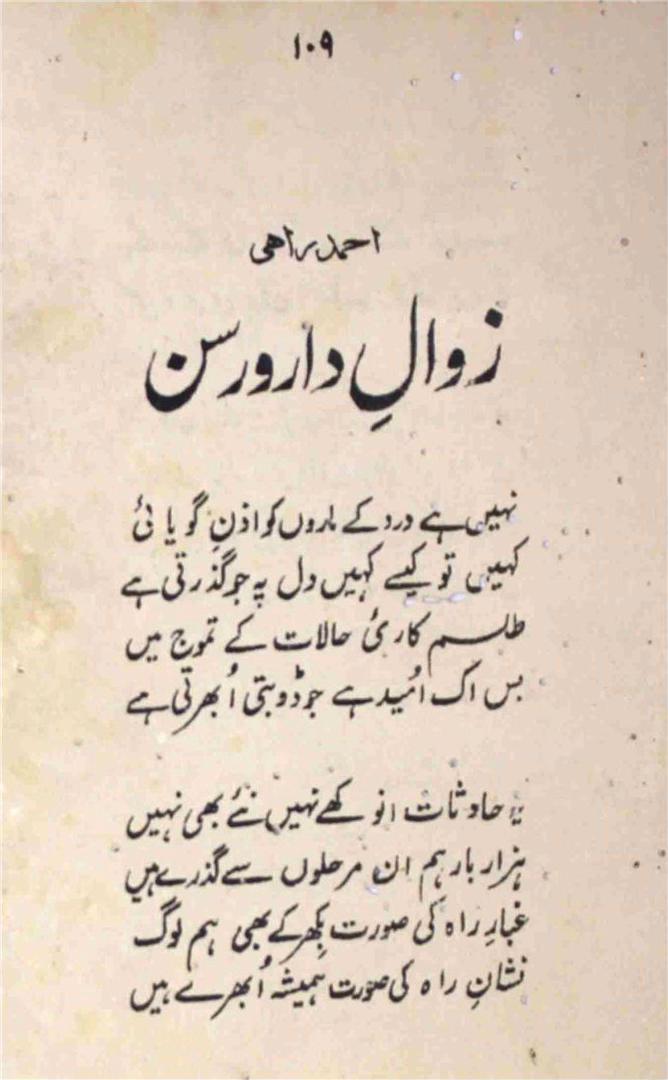 ۱۰۹
احمد راهی
زوالِ دار و رسن
نہیں ہے درد کے ماروں کو اذنِ گویائی
کہیں تو کیسے کہیں دل پہ جو گذرتی ہے
طلسم کاریٔ حالات کے تموج میں
بس اک اُمید ہے جو ڈوبتی اُبھرتی ہے
یہ حادثات انوکھے نہیں نئے بھی نہیں
ہزار بار ہم ان مرحلوں سے گذرے ہیں
غبارِ راہ کی صورت بکھر کے بھی ہم لوگ
نشانِ راہ کی صورت ہمیشہ اُبھرے ہیں